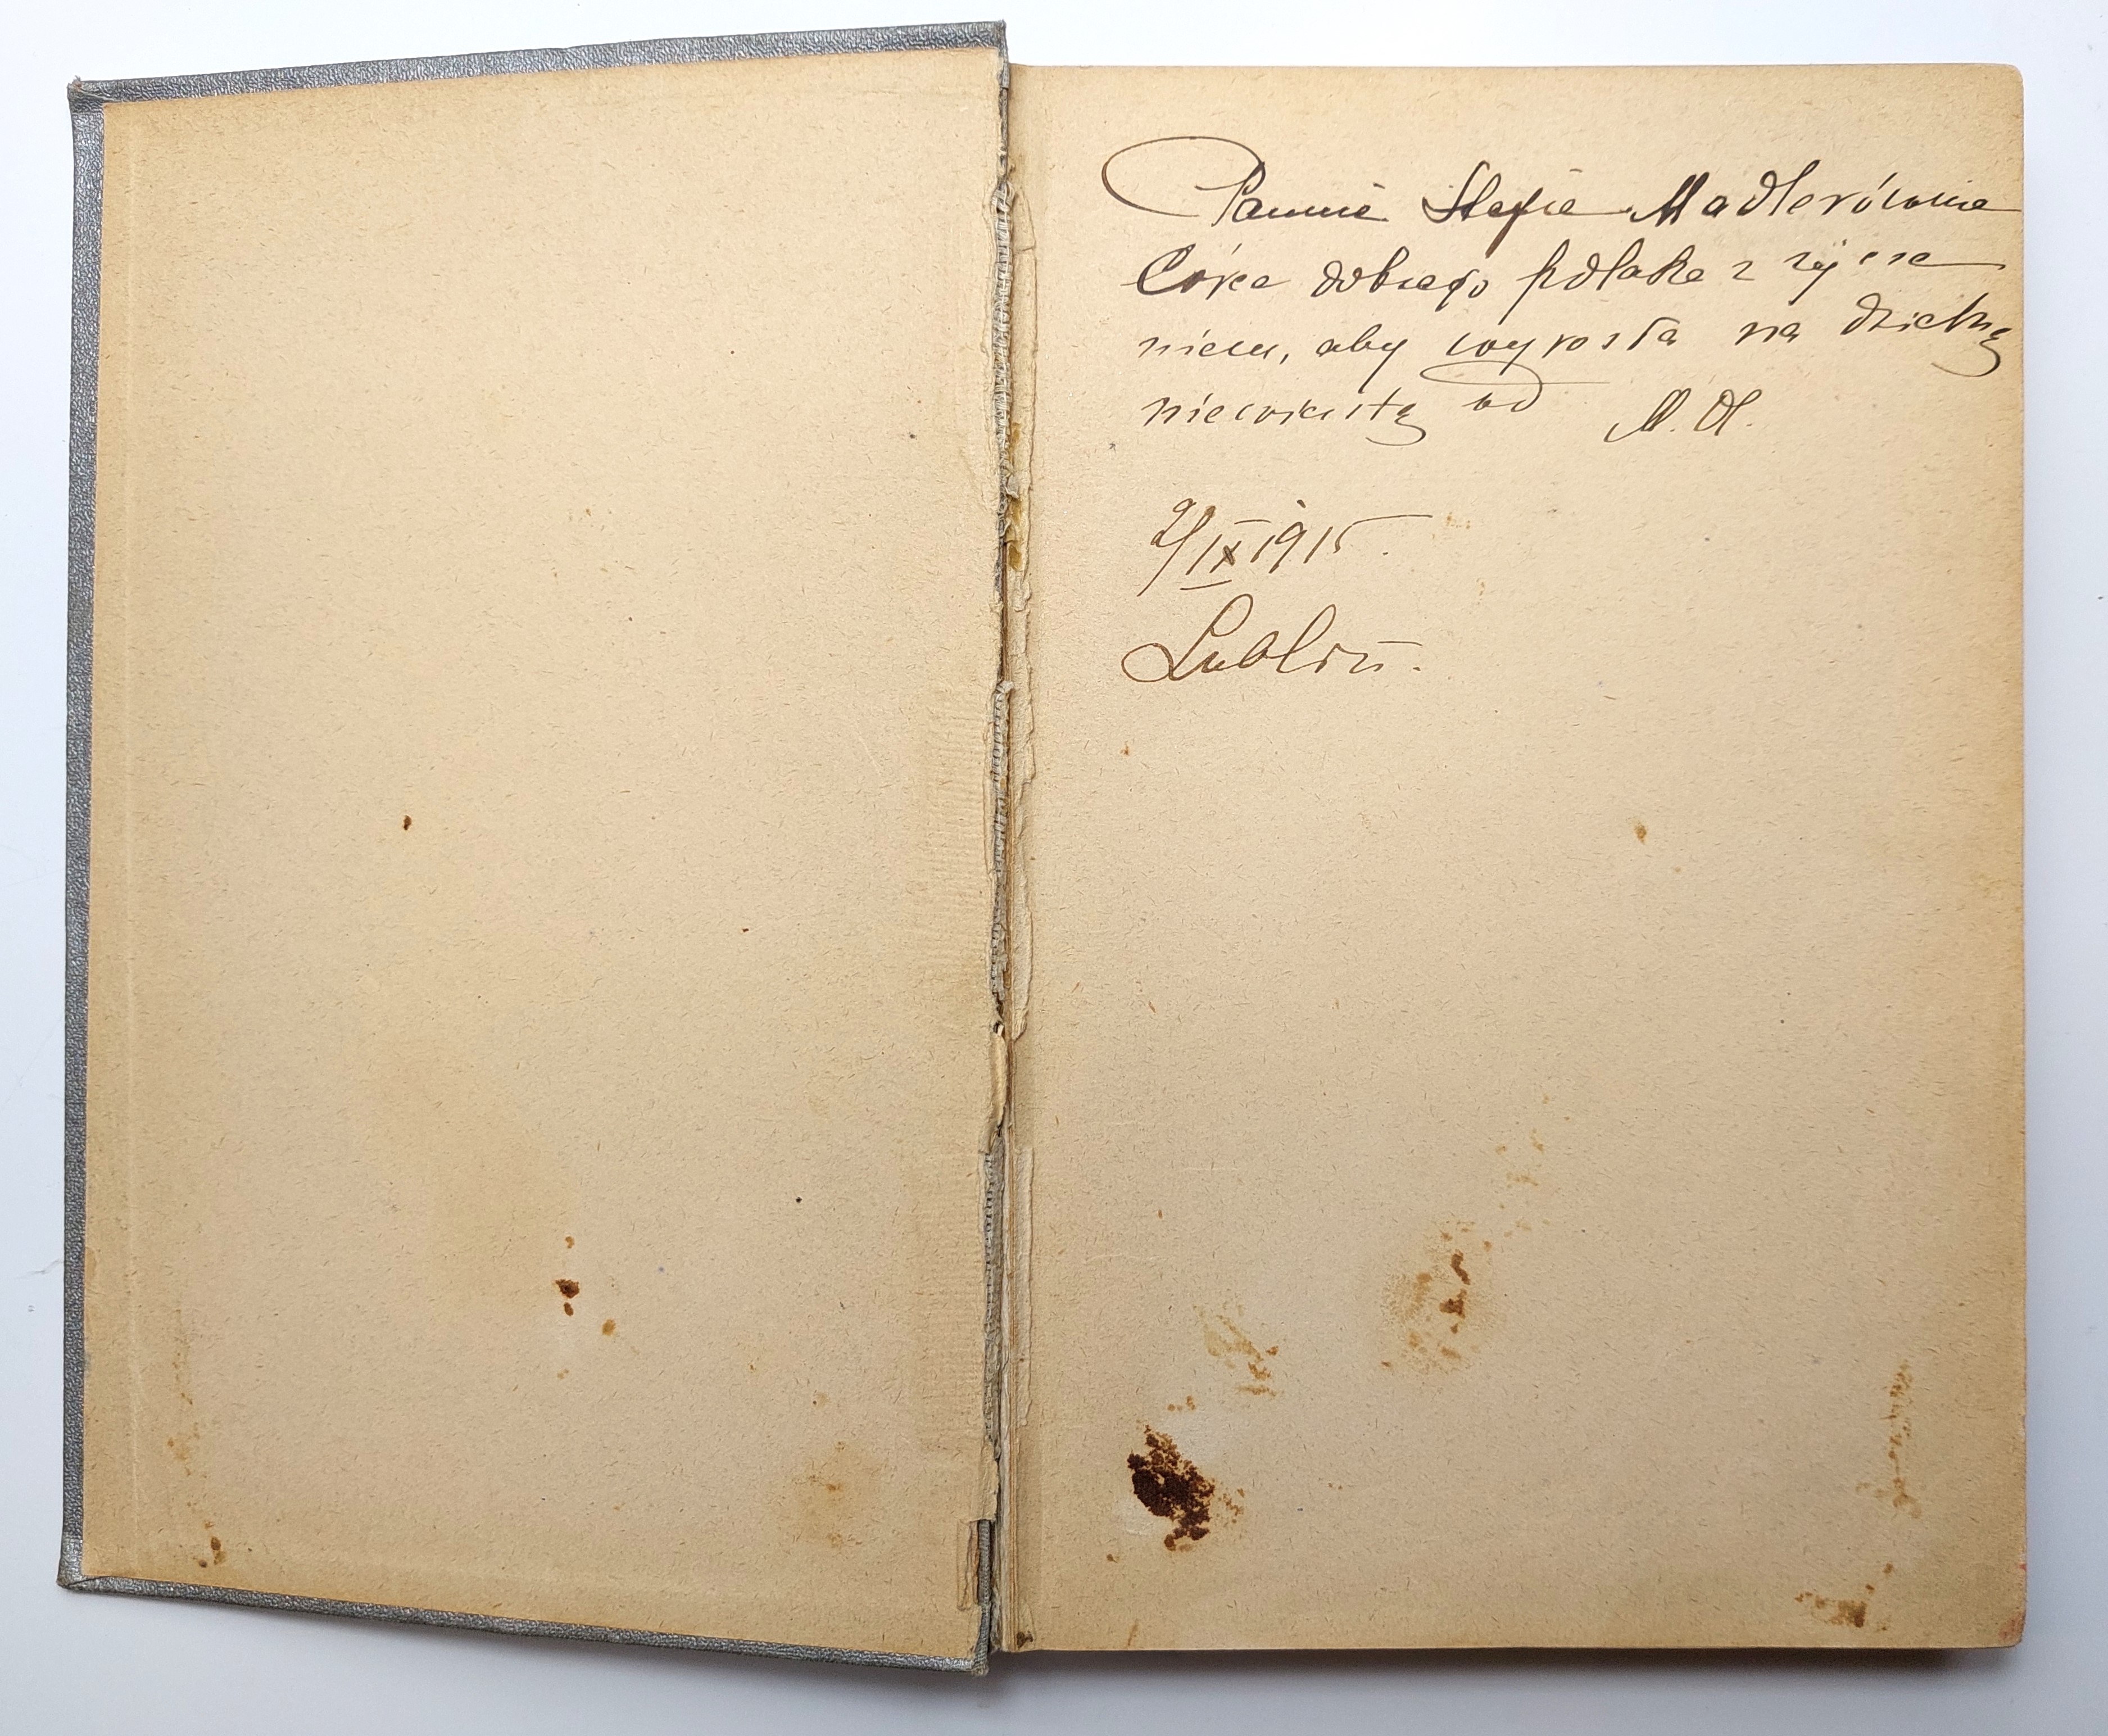 Pannie Stefie Madlerównie
Córce dobrego polaka z życze
niem, aby wyrosła na dzielną
niewiastę od M. H.
2/IX 1915.
Lublin.